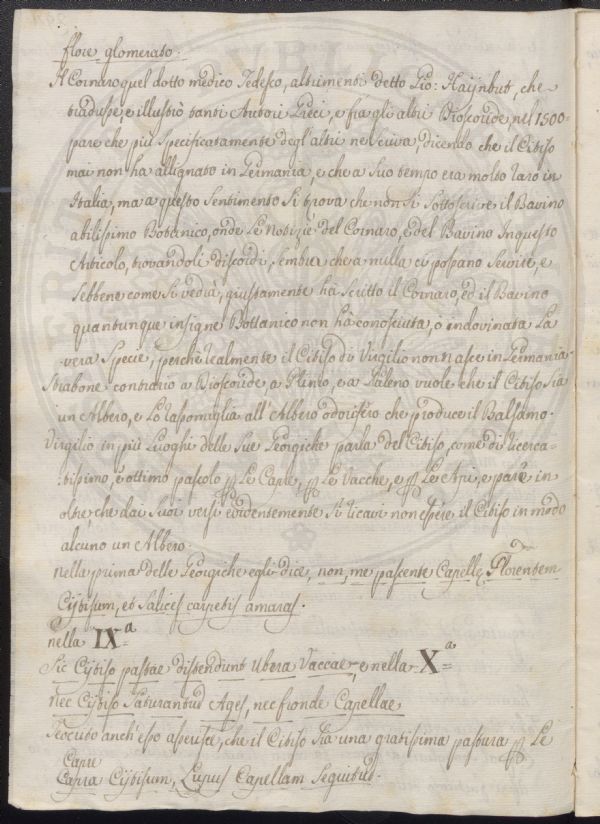 flore glomerato.
Il Cornaro quel dotto medico Tedesco, altrimenti detto Gio: Haijnbut, che
tradusse, e illustrò tanti Autori Greci, e fra gli altri Dioscoride, nel 1500
pare che più specificatamente degl'altri ne scriva, dicendo che il Citiso
mai non ha allignato in Germania, e che a suo tempo era molto raro in
Italia, ma a questo sentimento si trova che non si sottoscrive il Bavino
abilissimo Botanico, onde le Notizie del Cornaro, e del Bavino in questo
Articolo, trovandoli discordi, sembra che a nulla ci possano servire, e
sebbene come si vedrà, giustamente ha scritto il Cornaro, ed il Bavino
quantunque insigne Bottanico non hà conosciuta, o indovinata la
vera specie, perchè realmente il Citiso di Virgilio non nasce in Germania.
Strabone contrario a Dioscoride, a Plinio, e a Galeno vuole che il Citiso sia
un Albero, e lo rassomiglia all'Albero odorifero che produce il Balsamo.
Virgilio in più luoghi delle sue Georgiche parla del Citiso, come di ricerca-
:tissimo, e ottimo pascolo p le Capre, p le Vacche, e p le Api, e pare in
oltre che dai suoi versi evidentemente si ricavi non essere il Citiso in modo
alcuno un Albero.
Nella prima delle Georgiche egli dice, non, me pascente Capellę, Florentem
Cytisum, et salices carpetis amaras.
nella IXª
Sic Cytiso pastae distendunt ubera Vaccae, e nella Xª
Nec Cytiso saturantur Apes, nec fronde Capellae
Teocrito anch'esso asserisce, che il Citiso sia una gratissima pastura p le
Capre
Capra Cytisum, Lupus Capellam sequitur.